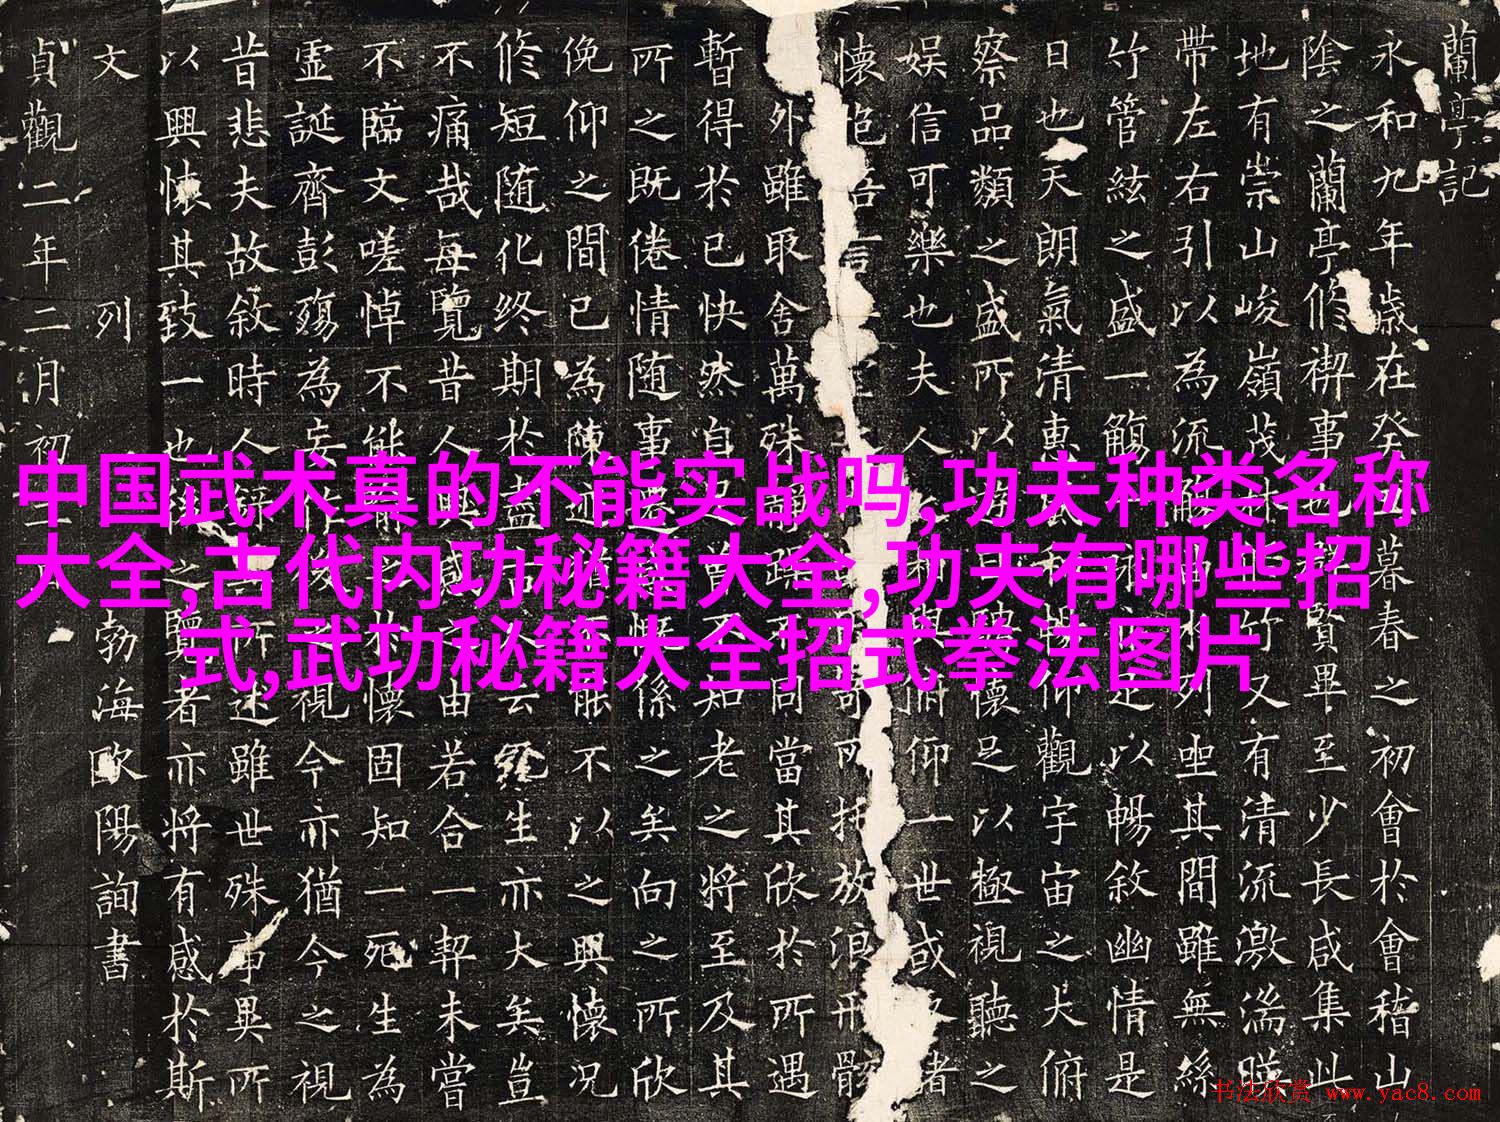 蘭亭記
永和九年歳在癸暮春之初會於會稽山
陰之蘭亭修禊事賢畢至少長咸集此
地有崇山峻嶺茂竹又有清流激湍暎
帶左右引以為流列坐其間雖無絲
竹管絃之盛一觴足以暢敘幽情是
日也天朗氣清惠仰觀宇宙之大俯
察品類之盛所以懷足以極視聽之
娱信可樂也夫人俯仰一世或諸
懷抱言放浪形骸
外雖取舍萬殊同當其欣於所遇
暫得於己快然自知老之將至及其
所之既倦情随事係之矣向之所欣
俛仰之間已為陳能不以之興懷况
修短随化终期於云死生亦大矣豈
不痛哉每覽昔人由若合一契未嘗
不臨文嗟悼不能懷固知一死生為
虛誕齊彭殤為妄視今亦猶今之視
昔悲夫故敘時人所述雖世殊事異所
以興懷其致一也之覽者亦將有感於斯
文 列 勃海歐陽詢書
貞觀二年二月初
中国武术真的不能实战吗,功夫种类名称
大全,古代内功秘籍大全,功夫有哪些招
式,武功秘籍大全招式拳法图片
书法欣赏 www.yac8.com